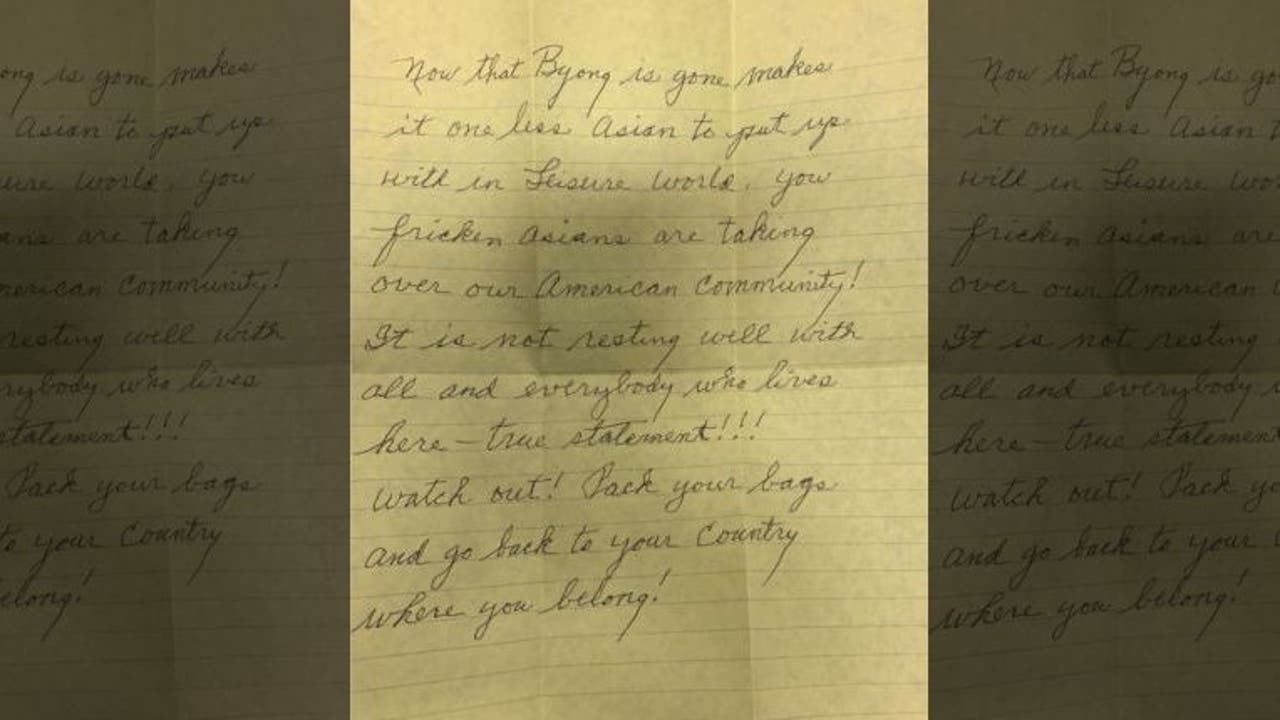 Now that Byong is gone makes
it one less Asian to put up
with in Leisure World. You
fricken Asians are taking
over our American Community!
It is not resting well with
all and everybody who lives
here - true statement!!!
Watch out! Pack your bags
and go back to your Country
where you belong!